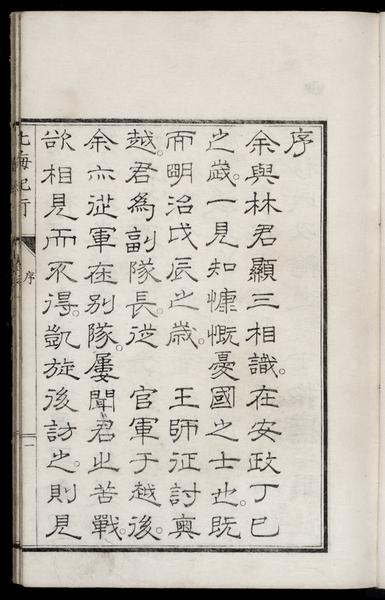 序
余與林君顯三相識。在安政丁巳
之歲。一見知慷慨憂國之士也。既
而明治戊辰之歲。　王師征討奧
越。君為副隊長。從　官軍于越後。
余亦從軍在別隊。屢聞君之苦戰。
欲相見而不得。凱旋後訪之。則見
北海紀行
序
一